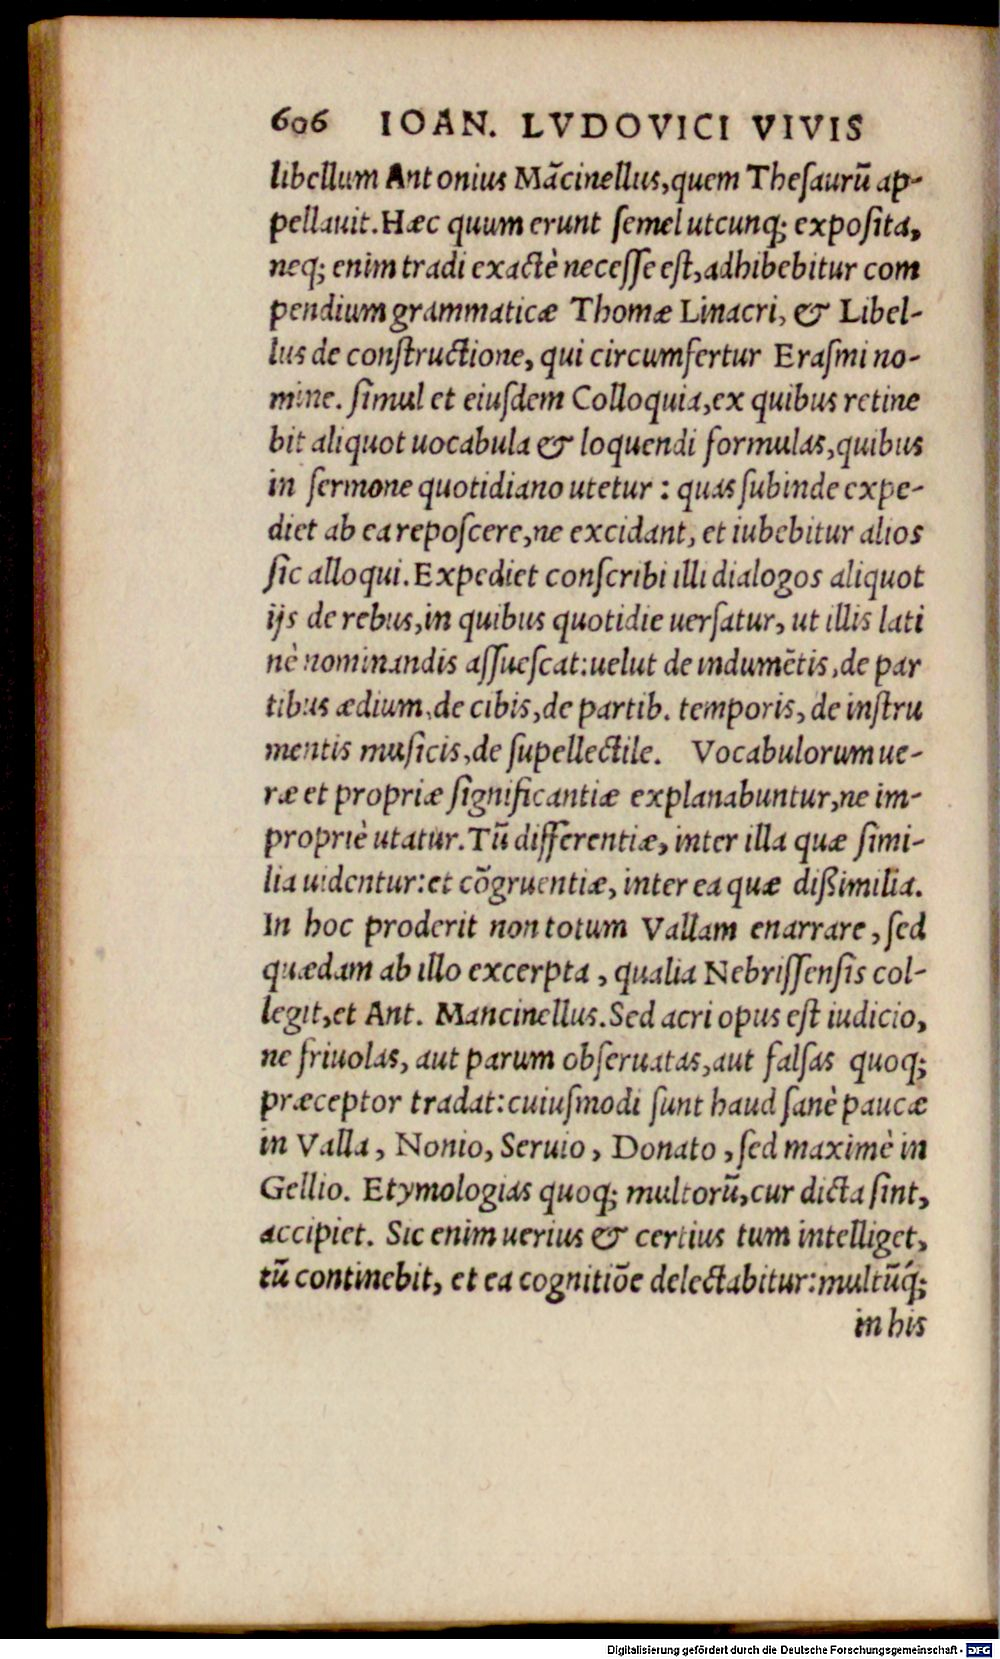 606 IOAN. LVDOVICI VIVIS
libellum Antonius Mãcinellus,quem Theſaurũ ap-
pellauit. Hæc quum erunt ſemel utcunq; expoſita,
neq; enim tradi exactè neceſſe eſt, adhibebitur com
pendium grammaticæ Thomæ Linacri, & Libel-
lus de conſtructione, qui circumfertur Eraſmi no-
mine. ſimul et eiuſdem Colloquia,ex quibus retine
bit aliquot uocabula & loquendi formulas,quibus
in ſermone quotidiano utetur : quas ſubinde expe-
diet ab ea repoſcere,ne excidant, et iubebitur alios
ſic alloqui. Expediet conſcribi illi dialogos aliquot
ijs de rebus,in quibus quotidie uerſatur, ut illis lati
nè nominandis aſſueſcat:uelut de indumẽtis,de par
tibus ædium,de cibis,de partib. temporis, de inſtru
mentis muſicis,de ſupellectile. Vocabulorum ue-
ræ et propriæ ſignificantiæ explanabuntur,ne im-
propriè utatur. Tũ differentiæ, inter illa quæ ſimi-
lia uidentur:et cõgruentiæ, inter ea quæ dißimilia.
In hoc proderit non totum Vallam enarrare, ſed
quædam ab illo excerpta, qualia Nebriſſenſis col-
legit,et Ant. Mancinellus. Sed acri opus eſt iudicio,
ne friuolas, aut parum obſeruatas,aut falſas quoq;
præceptor tradat:cuiuſmodi ſunt haud ſanè paucæ
in Valla, Nonio, Seruio, Donato, ſed maximè in
Gellio. Etymologias quoq; multorũ,cur dicta ſint,
accipiet. Sic enim uerius & certius tum intelliget,
tũ continebit, et ea cognitiõe delectabitur:multũq́;
in his
Digitalisierung gefördert durch die Deutsche Forschungsgemeinschaft - DFG